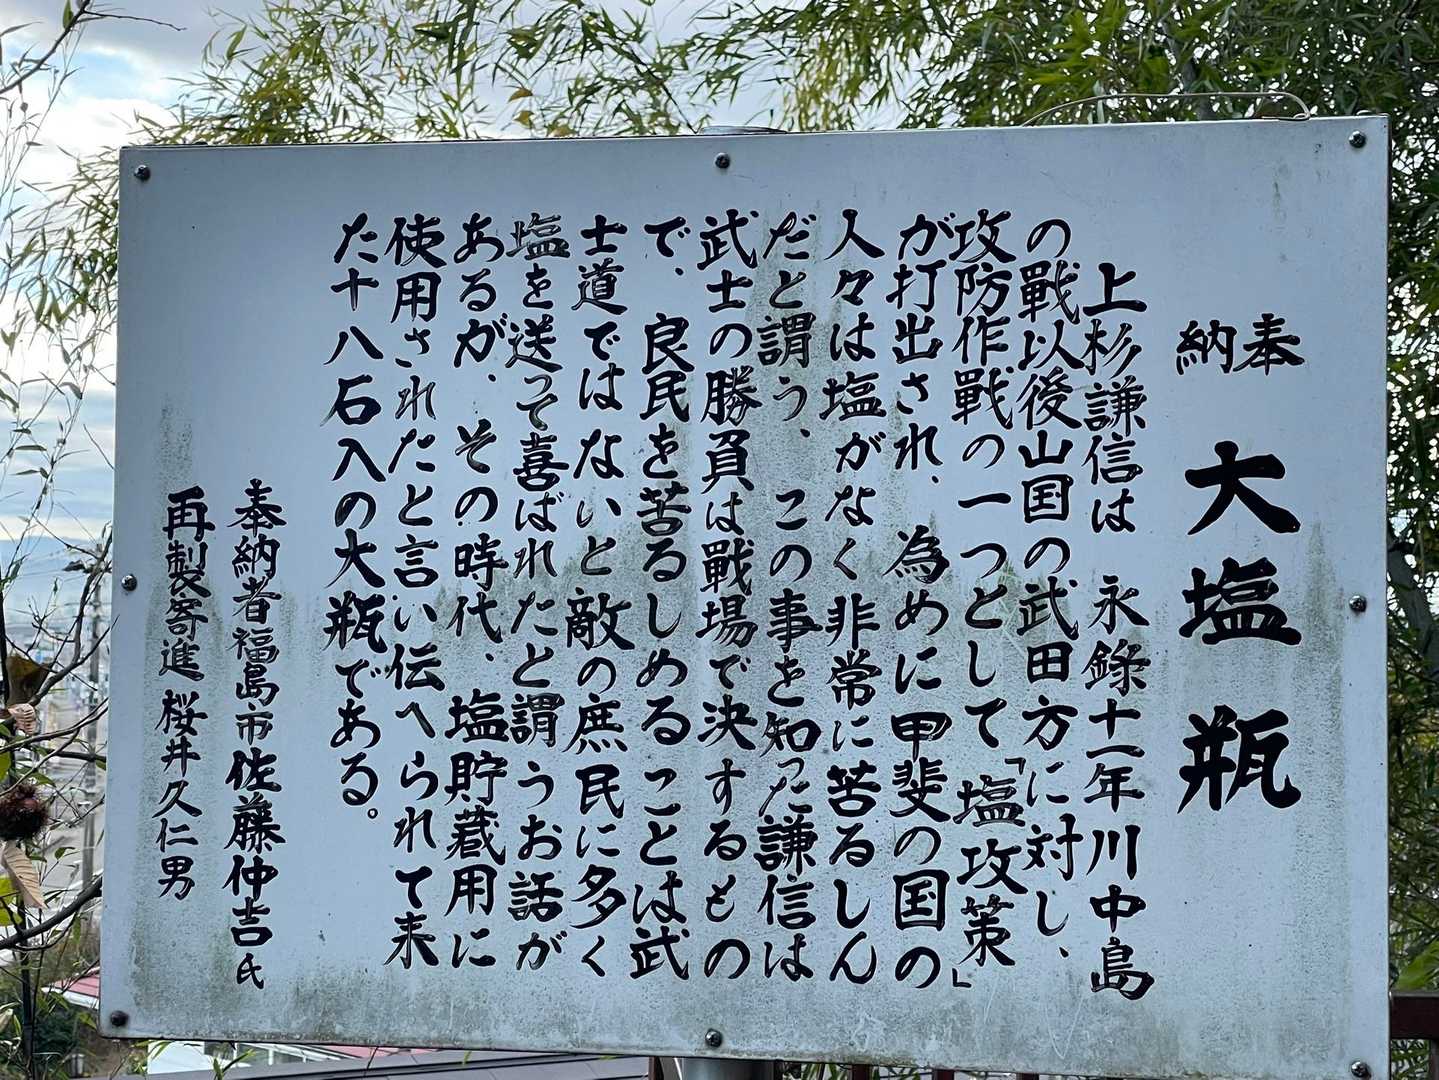 奉納　大塩瓶
上杉謙信は　永錄十一年川中島
の戰以後山国の武田方に対し、
攻防作戰の一つとして「塩攻策」
が打出され、為めに甲斐の国の
人々は塩がなく非常に苦るしん
だと謂う、この事を知った謙信は
武士の勝負は戰場で決するもの
で、良民を苦るしめることは武
士道ではないと敵の庶民に多く
塩を送って喜ばれたと謂うお話が
あるが、その時代、塩貯蔵用に
使用されたと言い伝へられて来
た十八石入の大瓶である。
奉納者福島市佐藤仲吉氏
再製寄進 桜井久仁男